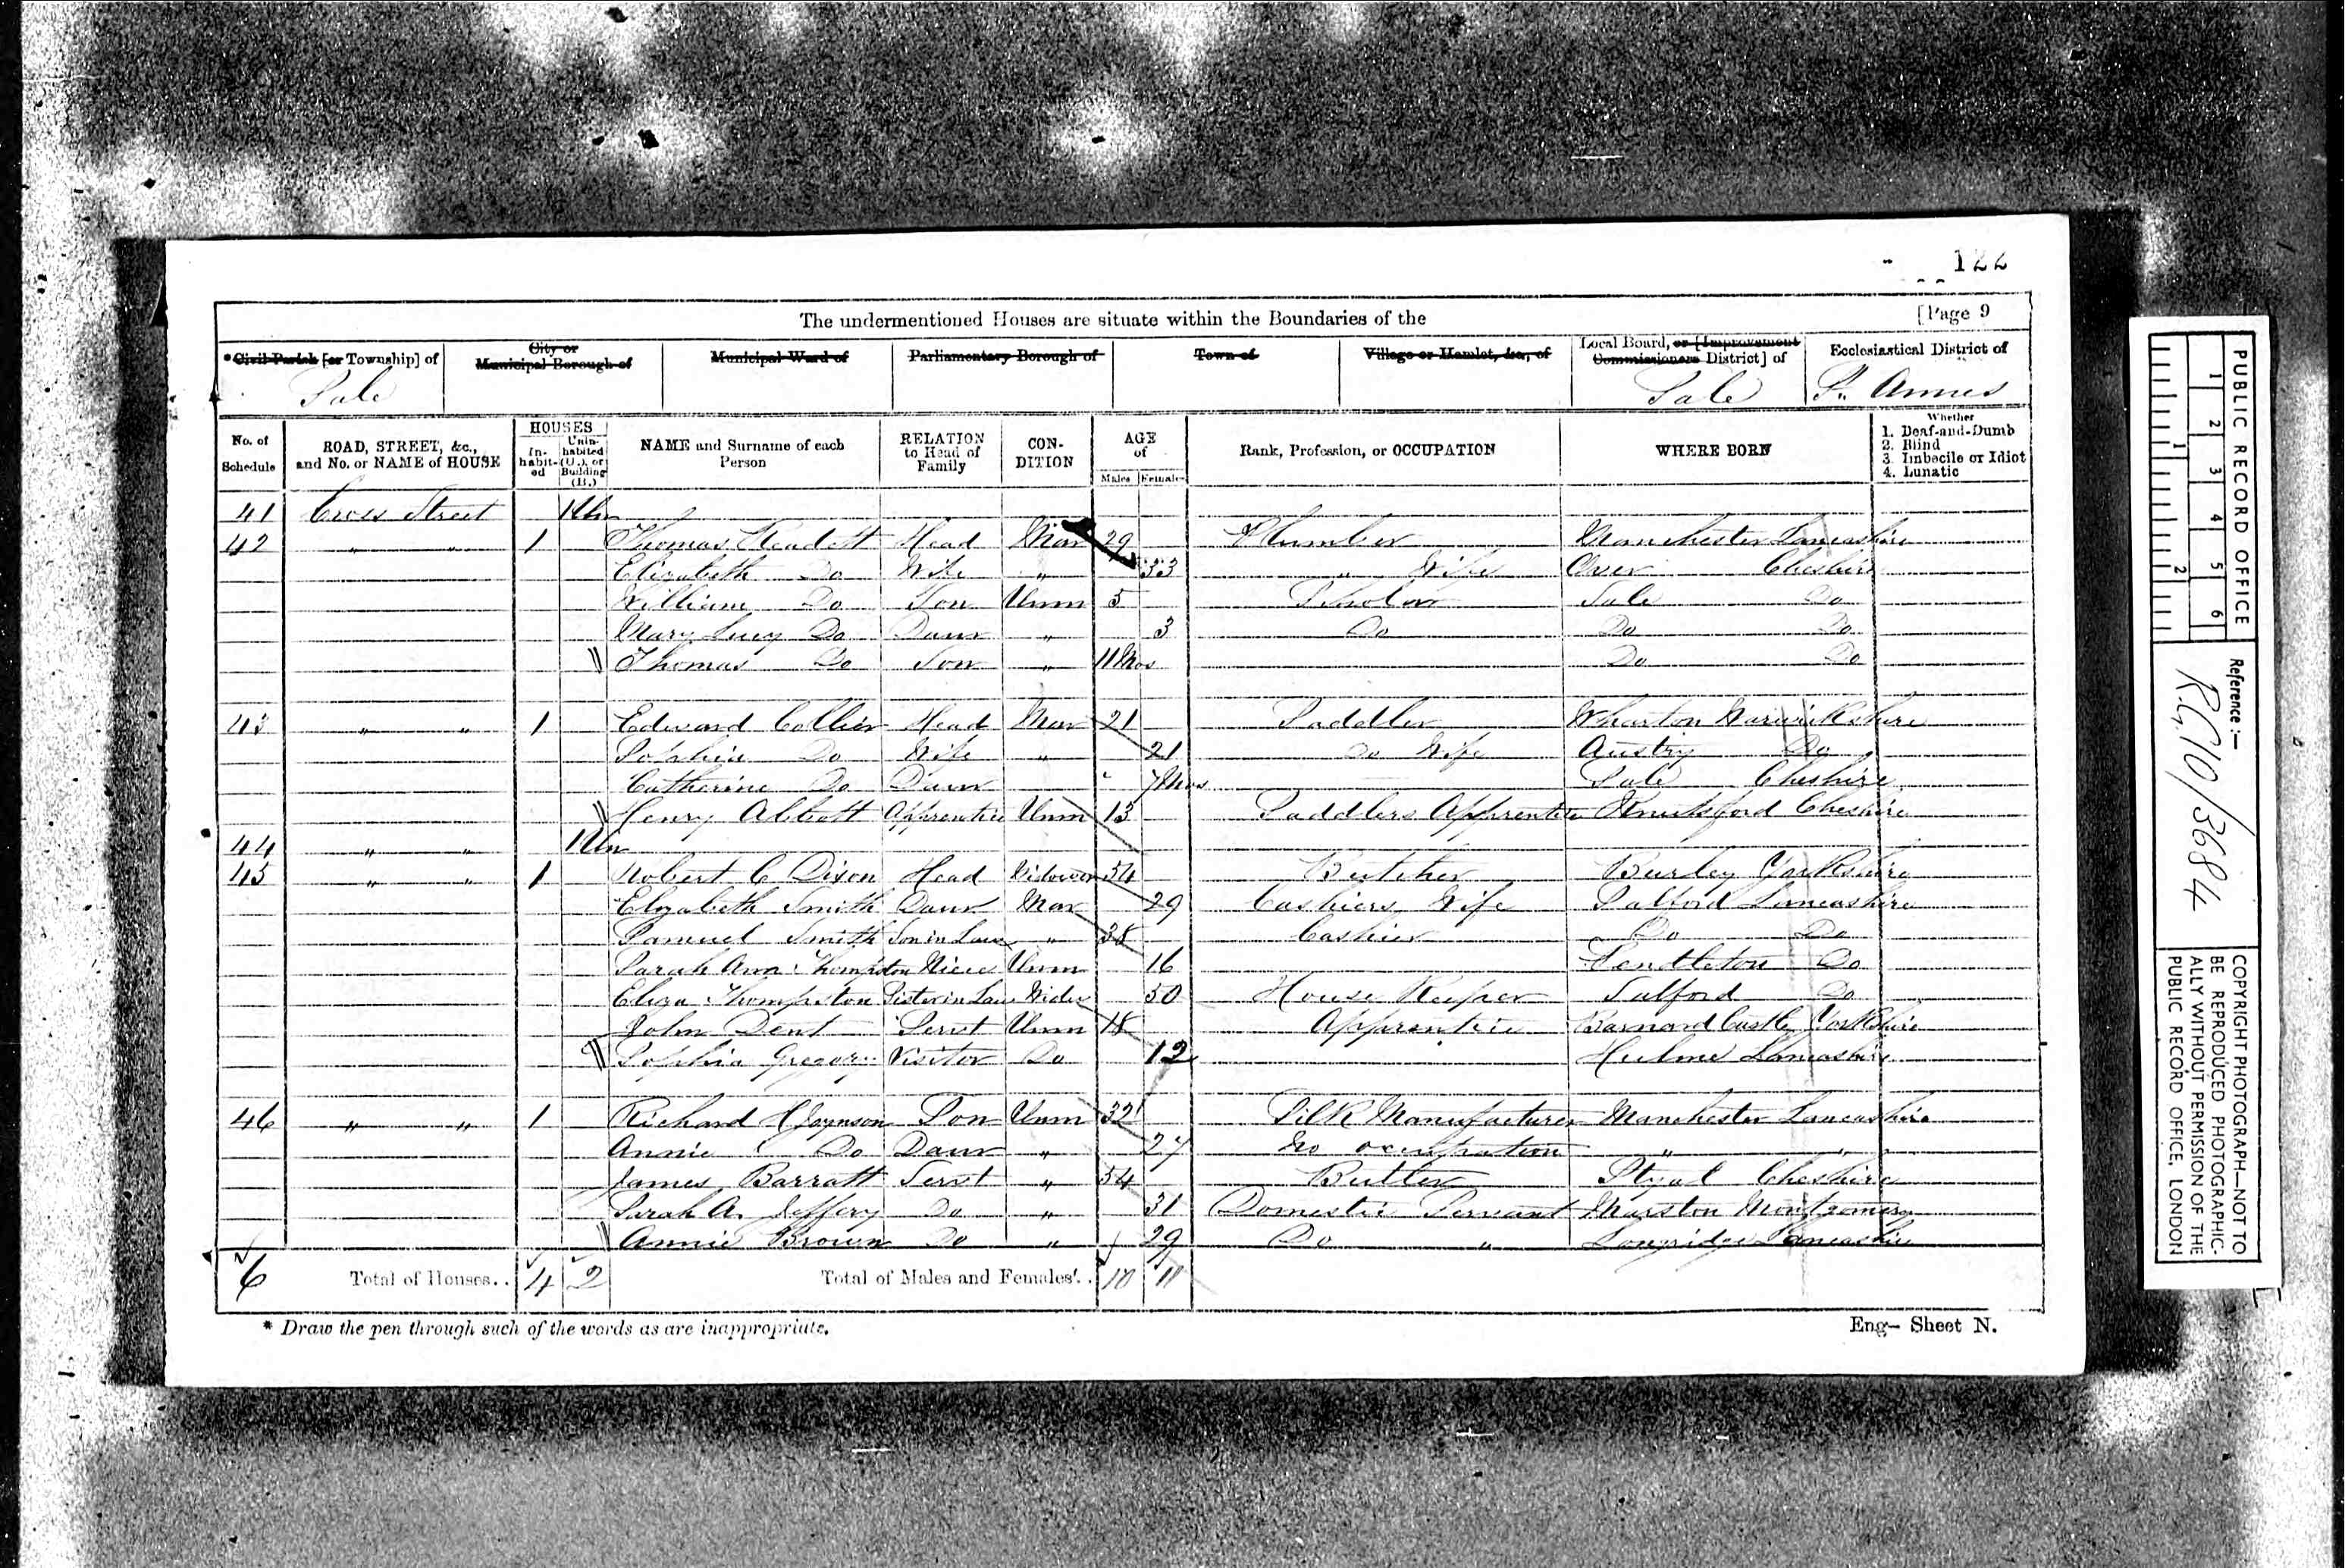 122
[Page 9
The undermentioned Houses are situate within the Boundaries of the
*Civil Parish [or Township] of
City or Municipal Borough of
Municipal Ward of
Parliamentary Borough of
Town of
Village or Hamlet, &c., of
Local Board, or [Improvement Commissioners District] of
Ecclesiastical District of
Sale Sale St. Annes
No. of Schedule
ROAD, STREET, &c., and No. or NAME of HOUSE
HOUSES
Inhabited
Uninhabited (U.), or Building (B.)
NAME and Surname of each Person
RELATION to Head of Family
CONDITION
AGE of
Males Females
Rank, Profession, or OCCUPATION
WHERE BORN
Whether
1. Deaf-and-Dumb
2. Blind
3. Imbecile or Idiot
4. Lunatic
41 Cross Street 1 Un
42 " " 1 Thomas Head Mar 29 Plumber Manchester Lancashire
Elizabeth Do Wife " 33 " Wife Over Cheshire
William Do Son Unm 5 Scholar Sale Do
Mary Lucy Do Daur " 3 Do Do Do
Thomas Do Son " 11 Mos Do Do
43 " " 1 Edward Collier Head Mar 21 Saddler Wharton Warwickshire
Sophia Do Wife " 21 Do Wife Austry Do
Catherine Do Daur 7 Mos Sale Cheshire
Henry Abbott Apprentice Unm 13 Saddlers Apprentice Knutsford Cheshire
44 " " 1 Un
45 " " 1 Robert C Dixon Head Widower 54 Butcher Burley Yorkshire
Elizabeth Smith Daur Mar 29 Cashiers Wife Salford Lancashire
Samuel Smith Son in Law " 38 Cashier Do Do
Sarah Ann Thompston Niece Unm 16 Pendleton Do
Eliza Thompston Sister in Law Widow 50 House Keeper Salford Do
John Dent Servt Unm 18 Apprentice Barnard Castle Yorkshire
Sophia Gregory Visitor Do 12 Hulme Lancashire
46 " " 1 Richard H Joynson Son Unm 32 Silk Manufacturer Manchester Lancashire
Annie Do Daur " 27 No occupation " "
James Barratt Servt " 54 Butler Styal Cheshire
Sarah A. Jeffery Do " 31 Domestic Servant Marston Montgomery
Annie Brown Do " 29 Do " Longridge Lancashire
6 Total of Houses.. 4 2 Total of Males and Females.. 10 11
* Draw the pen through such of the words as are inappropriate.
Eng— Sheet N.
PUBLIC RECORD OFFICE
1 2 3 4 5 6
1 2
Reference :—
RG 10/3684
COPYRIGHT PHOTOGRAPH—NOT TO
BE REPRODUCED PHOTOGRAPHIC-
ALLY WITHOUT PERMISSION OF THE
PUBLIC RECORD OFFICE, LONDON